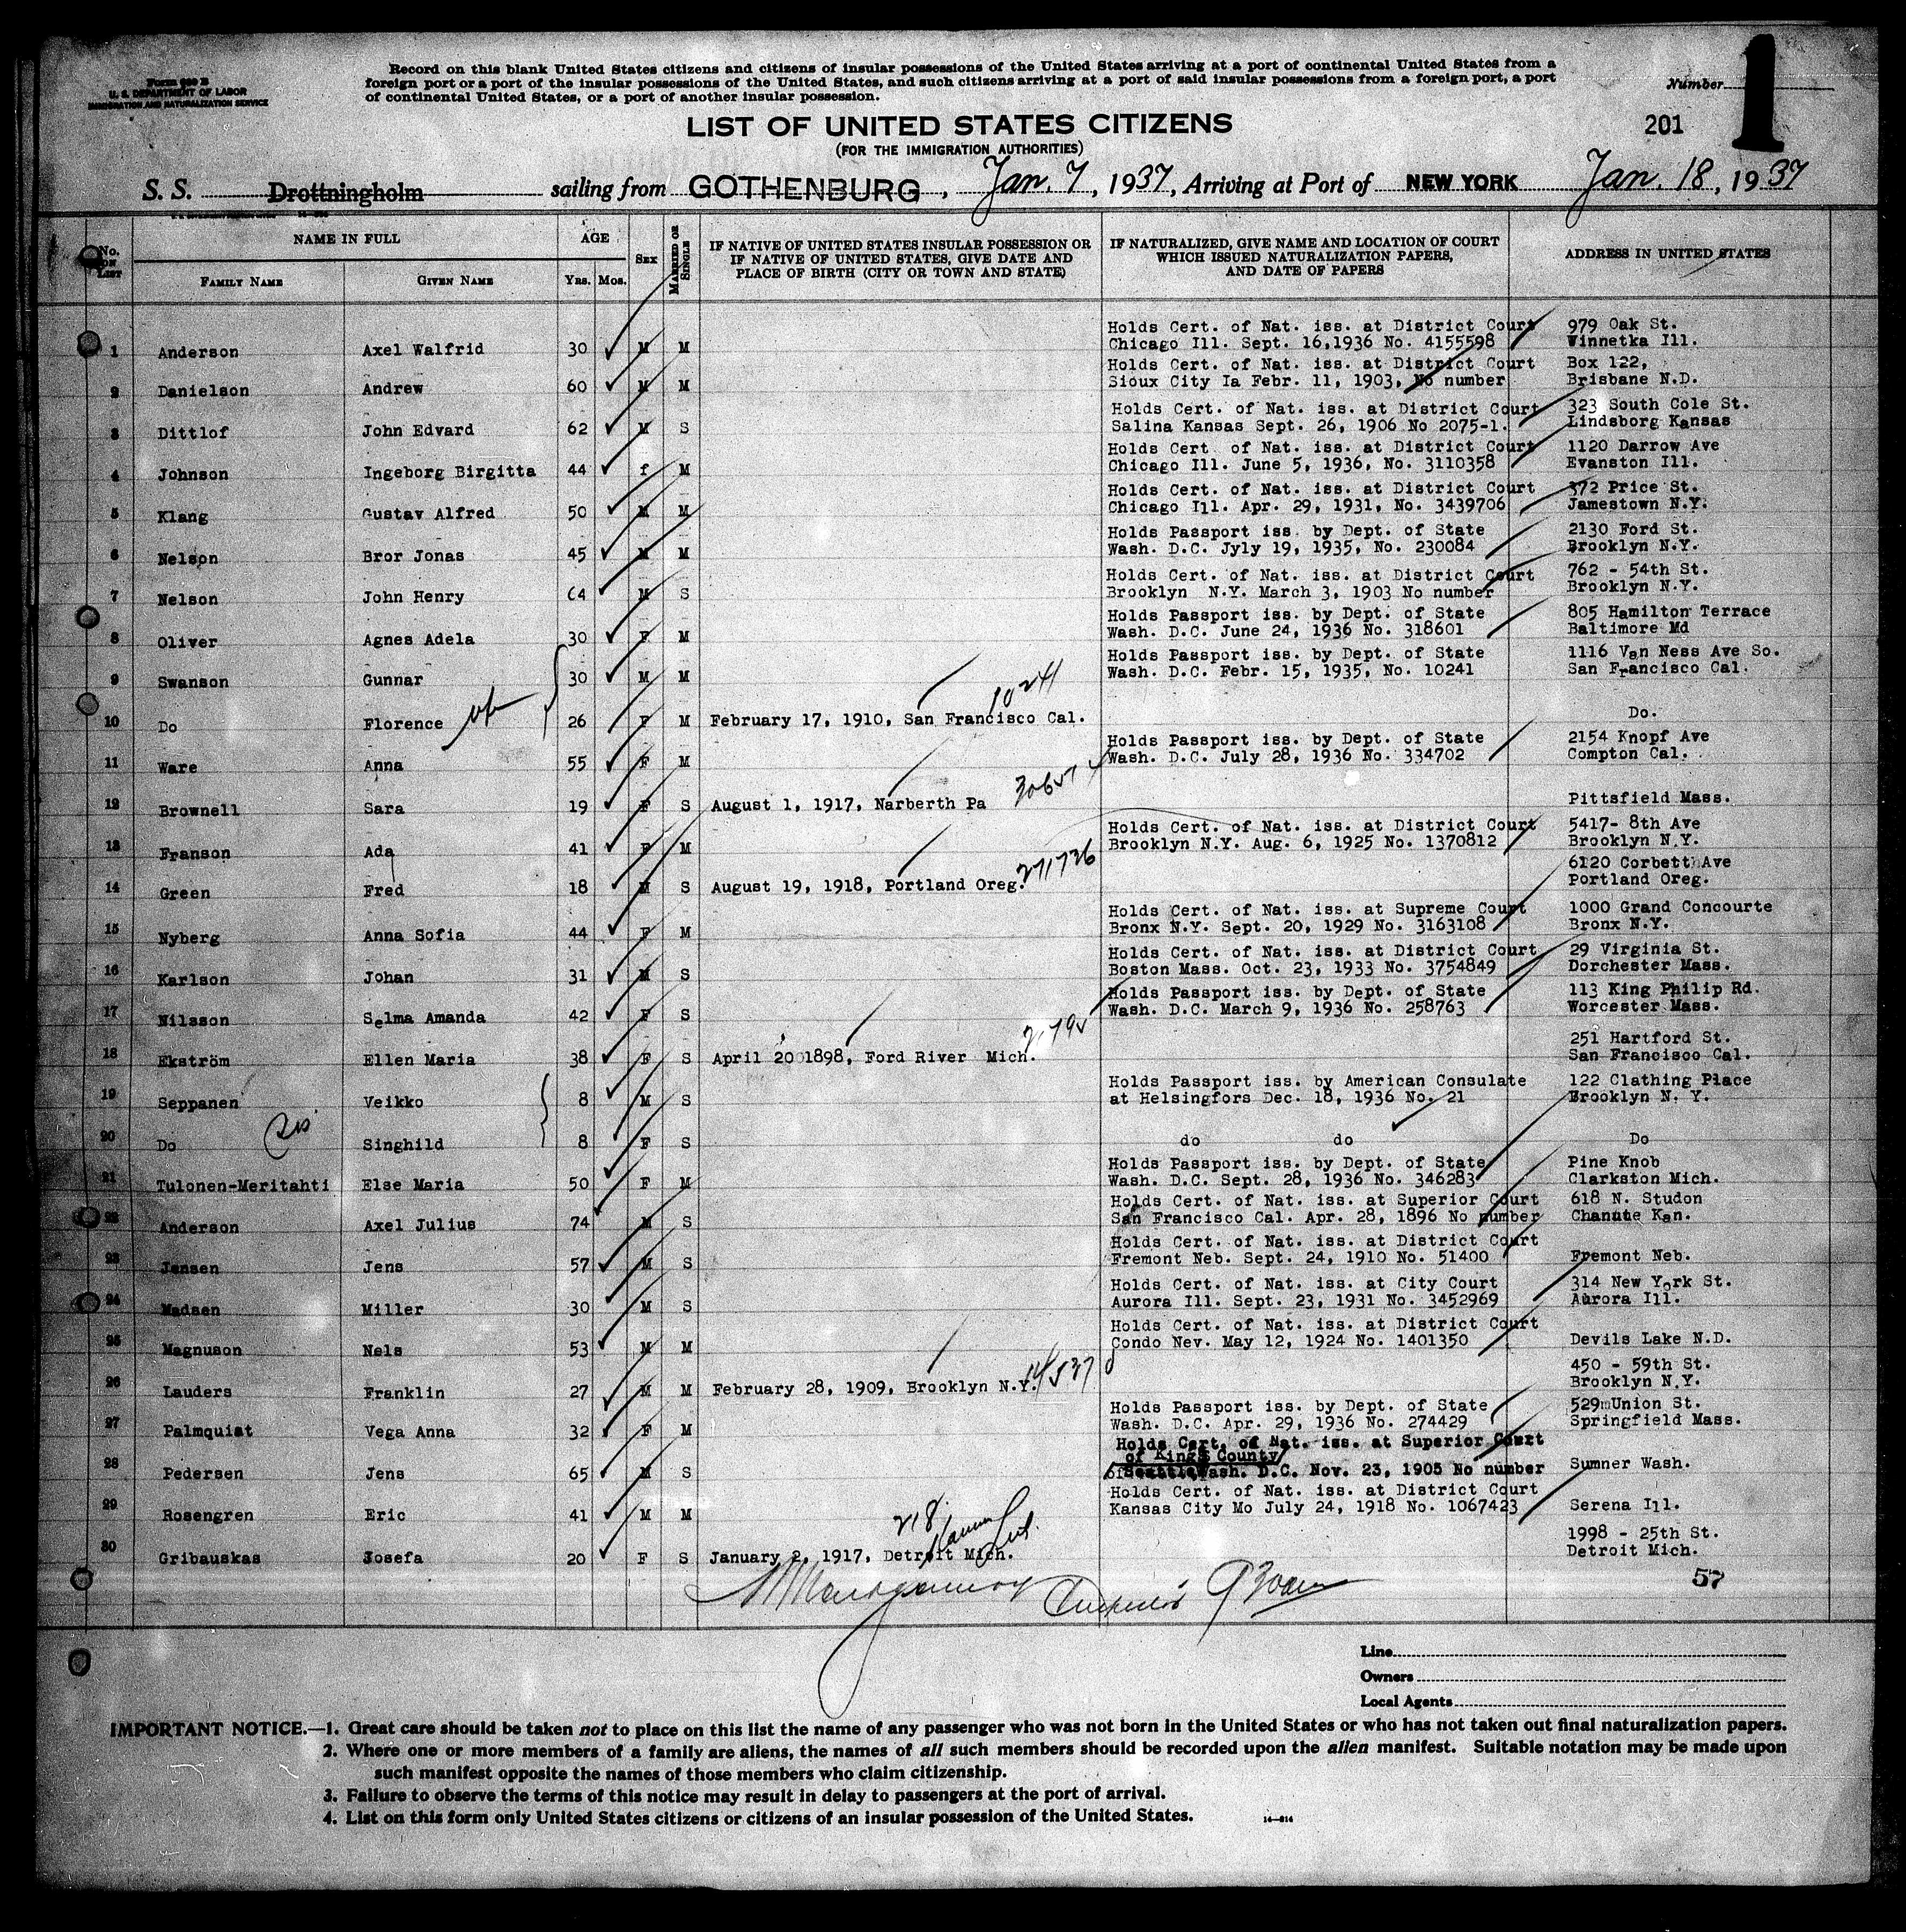 Form 630 B
U. S. DEPARTMENT OF LABOR
IMMIGRATION AND NATURALIZATION SERVICE
Record on this blank United States citizens and citizens of insular possessions of the United States arriving at a port of continental United States from a
foreign port or a port of the insular possessions of the United States, and such citizens arriving at a port of said insular possessions from a foreign port, a port
of continental United States, or a port of another insular possession.
Number 1
LIST OF UNITED STATES CITIZENS
201
(FOR THE IMMIGRATION AUTHORITIES)
S. S. Drottningholm sailing from GOTHENBURG, Jan. 7, 1937, Arriving at Port of NEW YORK Jan. 18, 1937
No. ON LIST
NAME IN FULL
FAMILY NAME
GIVEN NAME
AGE
YRS. MOS.
SEX
MARRIED OR SINGLE
IF NATIVE OF UNITED STATES INSULAR POSSESSION OR
IF NATIVE OF UNITED STATES, GIVE DATE AND
PLACE OF BIRTH (CITY OR TOWN AND STATE)
IF NATURALIZED, GIVE NAME AND LOCATION OF COURT
WHICH ISSUED NATURALIZATION PAPERS,
AND DATE OF PAPERS
ADDRESS IN UNITED STATES
Holds Cert. of Nat. iss. at District Court 979 Oak St.
1 Anderson Axel Walfrid 30 M M Chicago Ill. Sept. 16,1936 No. 4155598 Winnetka Ill.
Holds Cert. of Nat. iss. at District Court Box 122,
2 Danielson Andrew 60 M M Sioux City Ia Febr. 11, 1903, No number Brisbane N.D.
Holds Cert. of Nat. iss. at District Court 323 South Cole St.
3 Dittlof John Edvard 62 M S Salina Kansas Sept. 26, 1906 No 2075-1. Lindsborg Kansas
Holds Cert. of Nat. iss. at District Court 1120 Darrow Ave
4 Johnson Ingeborg Birgitta 44 f M Chicago Ill. June 5, 1936, No. 3110358 Evanston Ill.
Holds Cert. of Nat. iss. at District Court 372 Price St.
5 Klang Gustav Alfred 50 M M Chicago Ill. Apr. 29, 1931, No. 3439706 Jamestown N.Y.
Holds Passport iss. by Dept. of State 2130 Ford St.
6 Nelson Bror Jonas 45 M M Wash. D.C. Jyly 19, 1935, No. 230084 Brooklyn N.Y.
Holds Cert. of Nat. iss. at District Court 762 - 54th St.
7 Nelson John Henry 64 M S Brooklyn N.Y. March 3, 1903 No number Brooklyn N.Y.
Holds Passport iss. by Dept. of State 805 Hamilton Terrace
8 Oliver Agnes Adela 30 F M Wash. D.C. June 24, 1936 No. 318601 Baltimore Md
Holds Passport iss. by Dept. of State 1116 Van Ness Ave So.
9 Swanson Gunnar 30 M M Wash. D.C. Febr. 15, 1935, No. 10241 San Francisco Cal.
10241
10 Do Florence 26 F M February 17, 1910, San Francisco Cal. Do.
Holds Passport iss. by Dept. of State 2154 Knopf Ave
11 Ware Anna 55 F M Wash. D.C. July 28, 1936 No. 334702 Compton Cal.
12 Brownell Sara 19 F S August 1, 1917, Narberth Pa Pittsfield Mass.
Holds Cert. of Nat. iss. at District Court 5417- 8th Ave
13 Franson Ada 41 F M Brooklyn N.Y. Aug. 6, 1925 No. 1370812 Brooklyn N.Y.
6120 Corbett Ave
14 Green Fred 18 M S August 19, 1918, Portland Oreg. 271726 Portland Oreg.
Holds Cert. of Nat. iss. at Supreme Court 1000 Grand Concourte
15 Nyberg Anna Sofia 44 F M Bronx N.Y. Sept. 20, 1929 No. 3163108 Bronx N.Y.
Holds Cert. of Nat. iss. at District Court 29 Virginia St.
16 Karlson Johan 31 M S Boston Mass. Oct. 23, 1933 No. 3754849 Dorchester Mass.
Holds Passport iss. by Dept. of State 113 King Philip Rd.
17 Nilsson Selma Amanda 42 F S Wash. D.C. March 9, 1936 No. 258763 Worcester Mass.
251 Hartford St.
18 Ekström Ellen Maria 38 F S April 20 1898, Ford River Mich. San Francisco Cal.
Holds Passport iss. by American Consulate 122 Clathing Place
19 Seppanen Veikko 8 M S at Helsingfors Dec. 18, 1936 No. 21 Brooklyn N. Y.
20 Do Singhild 8 F S do do Do
Holds Passport iss. by Dept. of State Pine Knob
21 Tulonen-Meritahti Else Maria 50 F M Wash. D.C. Sept. 28, 1936 No. 346283 Clarkston Mich.
Holds Cert. of Nat. iss. at Superior Court 618 N. Studon
22 Anderson Axel Julius 74 M S San Francisco Cal. Apr. 28, 1896 No number Chanute Kan.
Holds Cert. of Nat. iss. at District Court
23 Jensen Jens 57 M S Fremont Neb. Sept. 24, 1910 No. 51400 Fremont Neb.
Holds Cert. of Nat. iss. at City Court 314 New York St.
24 Madsen Miller 30 M S Aurora Ill. Sept. 23, 1931 No. 3452969 Aurora Ill.
Holds Cert. of Nat. iss. at District Court
25 Magnuson Nels 53 M M Condo Nev. May 12, 1924 No. 1401350 Devils Lake N.D.
450 - 59th St.
26 Lauders Franklin 27 M M February 28, 1909, Brooklyn N.Y. Brooklyn N.Y.
Holds Passport iss. by Dept. of State 529 Union St.
27 Palmquist Vega Anna 32 F M Wash. D.C. Apr. 29, 1936 No. 274429 Springfield Mass.
Holds Cert. of Nat. iss. at Superior Court
of Kings County
28 Pedersen Jens 65 M S of Seattle Wash. D.C. Nov. 23, 1905 No number Sumner Wash.
Holds Cert. of Nat. iss. at District Court
29 Rosengren Eric 41 M M Kansas City Mo July 24, 1918 No. 1067423 Serena Ill.
218
1998 - 25th St.
30 Gribauskas Josefa 20 F S January 2, 1917, Detroit Mich. Detroit Mich.
57
Line
Owners
Local Agents
IMPORTANT NOTICE.—1. Great care should be taken not to place on this list the name of any passenger who was not born in the United States or who has not taken out final naturalization papers.
2. Where one or more members of a family are aliens, the names of all such members should be recorded upon the alien manifest. Suitable notation may be made upon
such manifest opposite the names of those members who claim citizenship.
3. Failure to observe the terms of this notice may result in delay to passengers at the port of arrival.
4. List on this form only United States citizens or citizens of an insular possession of the United States.
14—814